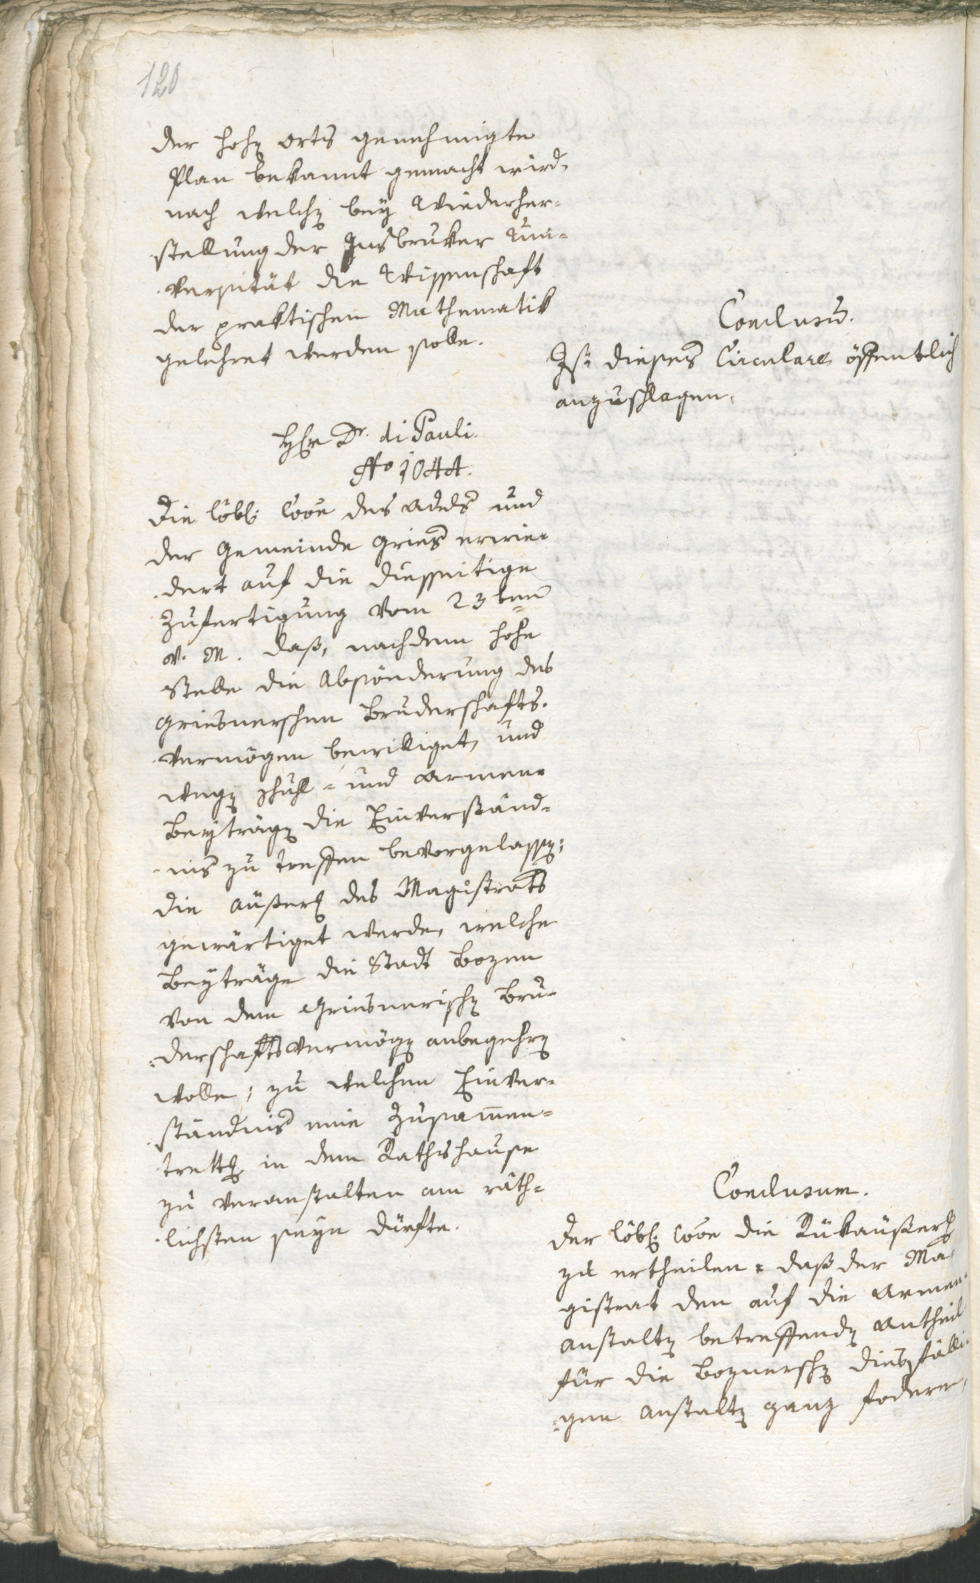 120
der hohen orts genehmigte
Plan bekannt gemacht wird,
nach welchen bey Wiederher-
stellung der Insbruker Uni-
versität die Wissenschaft
der praktischen Mathematik
gelehret werden solle.
Conclusum.
Ist dieses Circulare öffentlich
anzuschlagen.
Hr Dr. di Pauli.
No 1044.
Die löbl: Coõe des
der Gemeinde Gries erwie-
dert auf die diesseitige
Zufertigung vom 23ten
v. M. daß, nachdem hohe
Stelle die Absönderung des
Griesnerschen Bruderschafts-
vermögen bewilliget, und
wegen Schuhl- und Armen-
Beyträgen die Einverständ-
nis zu treffen bevorgelassen;
die äußerung des Magistrats
gewärtiget werde, welche
Beyträge die Stadt Bozen
von dem Griesnerischen Bru-
derschaftsvermögen anbegehren
wolle; zu welchen Einver-
ständnis eine Zusammen-
trettung in dem Rathshause
zu veranstalten am räth-
lichsten seyn dürfte.
Conclusum.
Der löbl: Coõe die Rükäußerung
zu ertheilen: daß der Ma-
gistrat den auf die Armen-
anstalten betreffenden Antheil
für die Boznerschen diesfälli-
gen Anstalten ganz fodere,